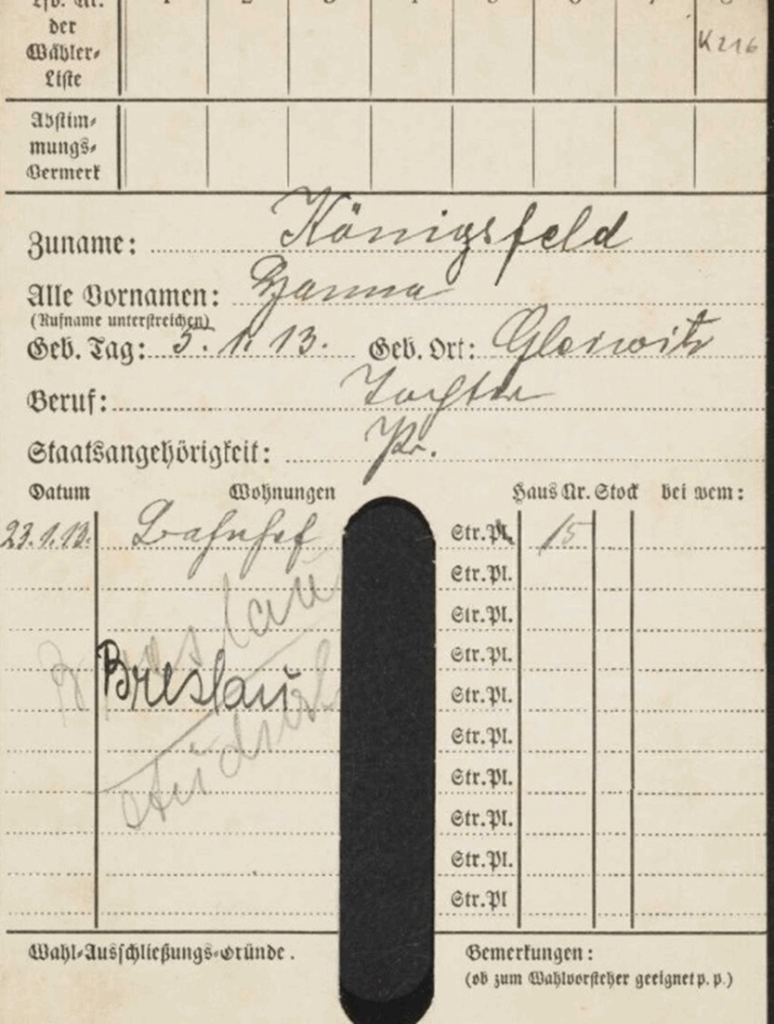 Lfd. Nr.
der
Wähler-
Liste
K 216
Abstim-
mungs-
Vermerk
Zuname: Königsfeld
Alle Vornamen: Hanna
(Rufname unterstreichen)
Geb. Tag: 5. 1. 13. Geb. Ort: Gleiwitz
Beruf: Tochter
Staatsangehörigkeit: Pr.
Datum Wohnungen Haus Nr. Stock bei wem:
23.1.13. Bahnhof Str. Pl. 15
Str. Pl.
Breslau
Str. Pl.
Str. Pl.
Breslau Str. Pl.
Str. Pl.
Str. Pl.
Str. Pl.
Str. Pl.
Str. Pl
Wahl-Ausschließungs-Gründe. Bemerkungen:
(ob zum Wahlvorsteher geeignet p. p.)